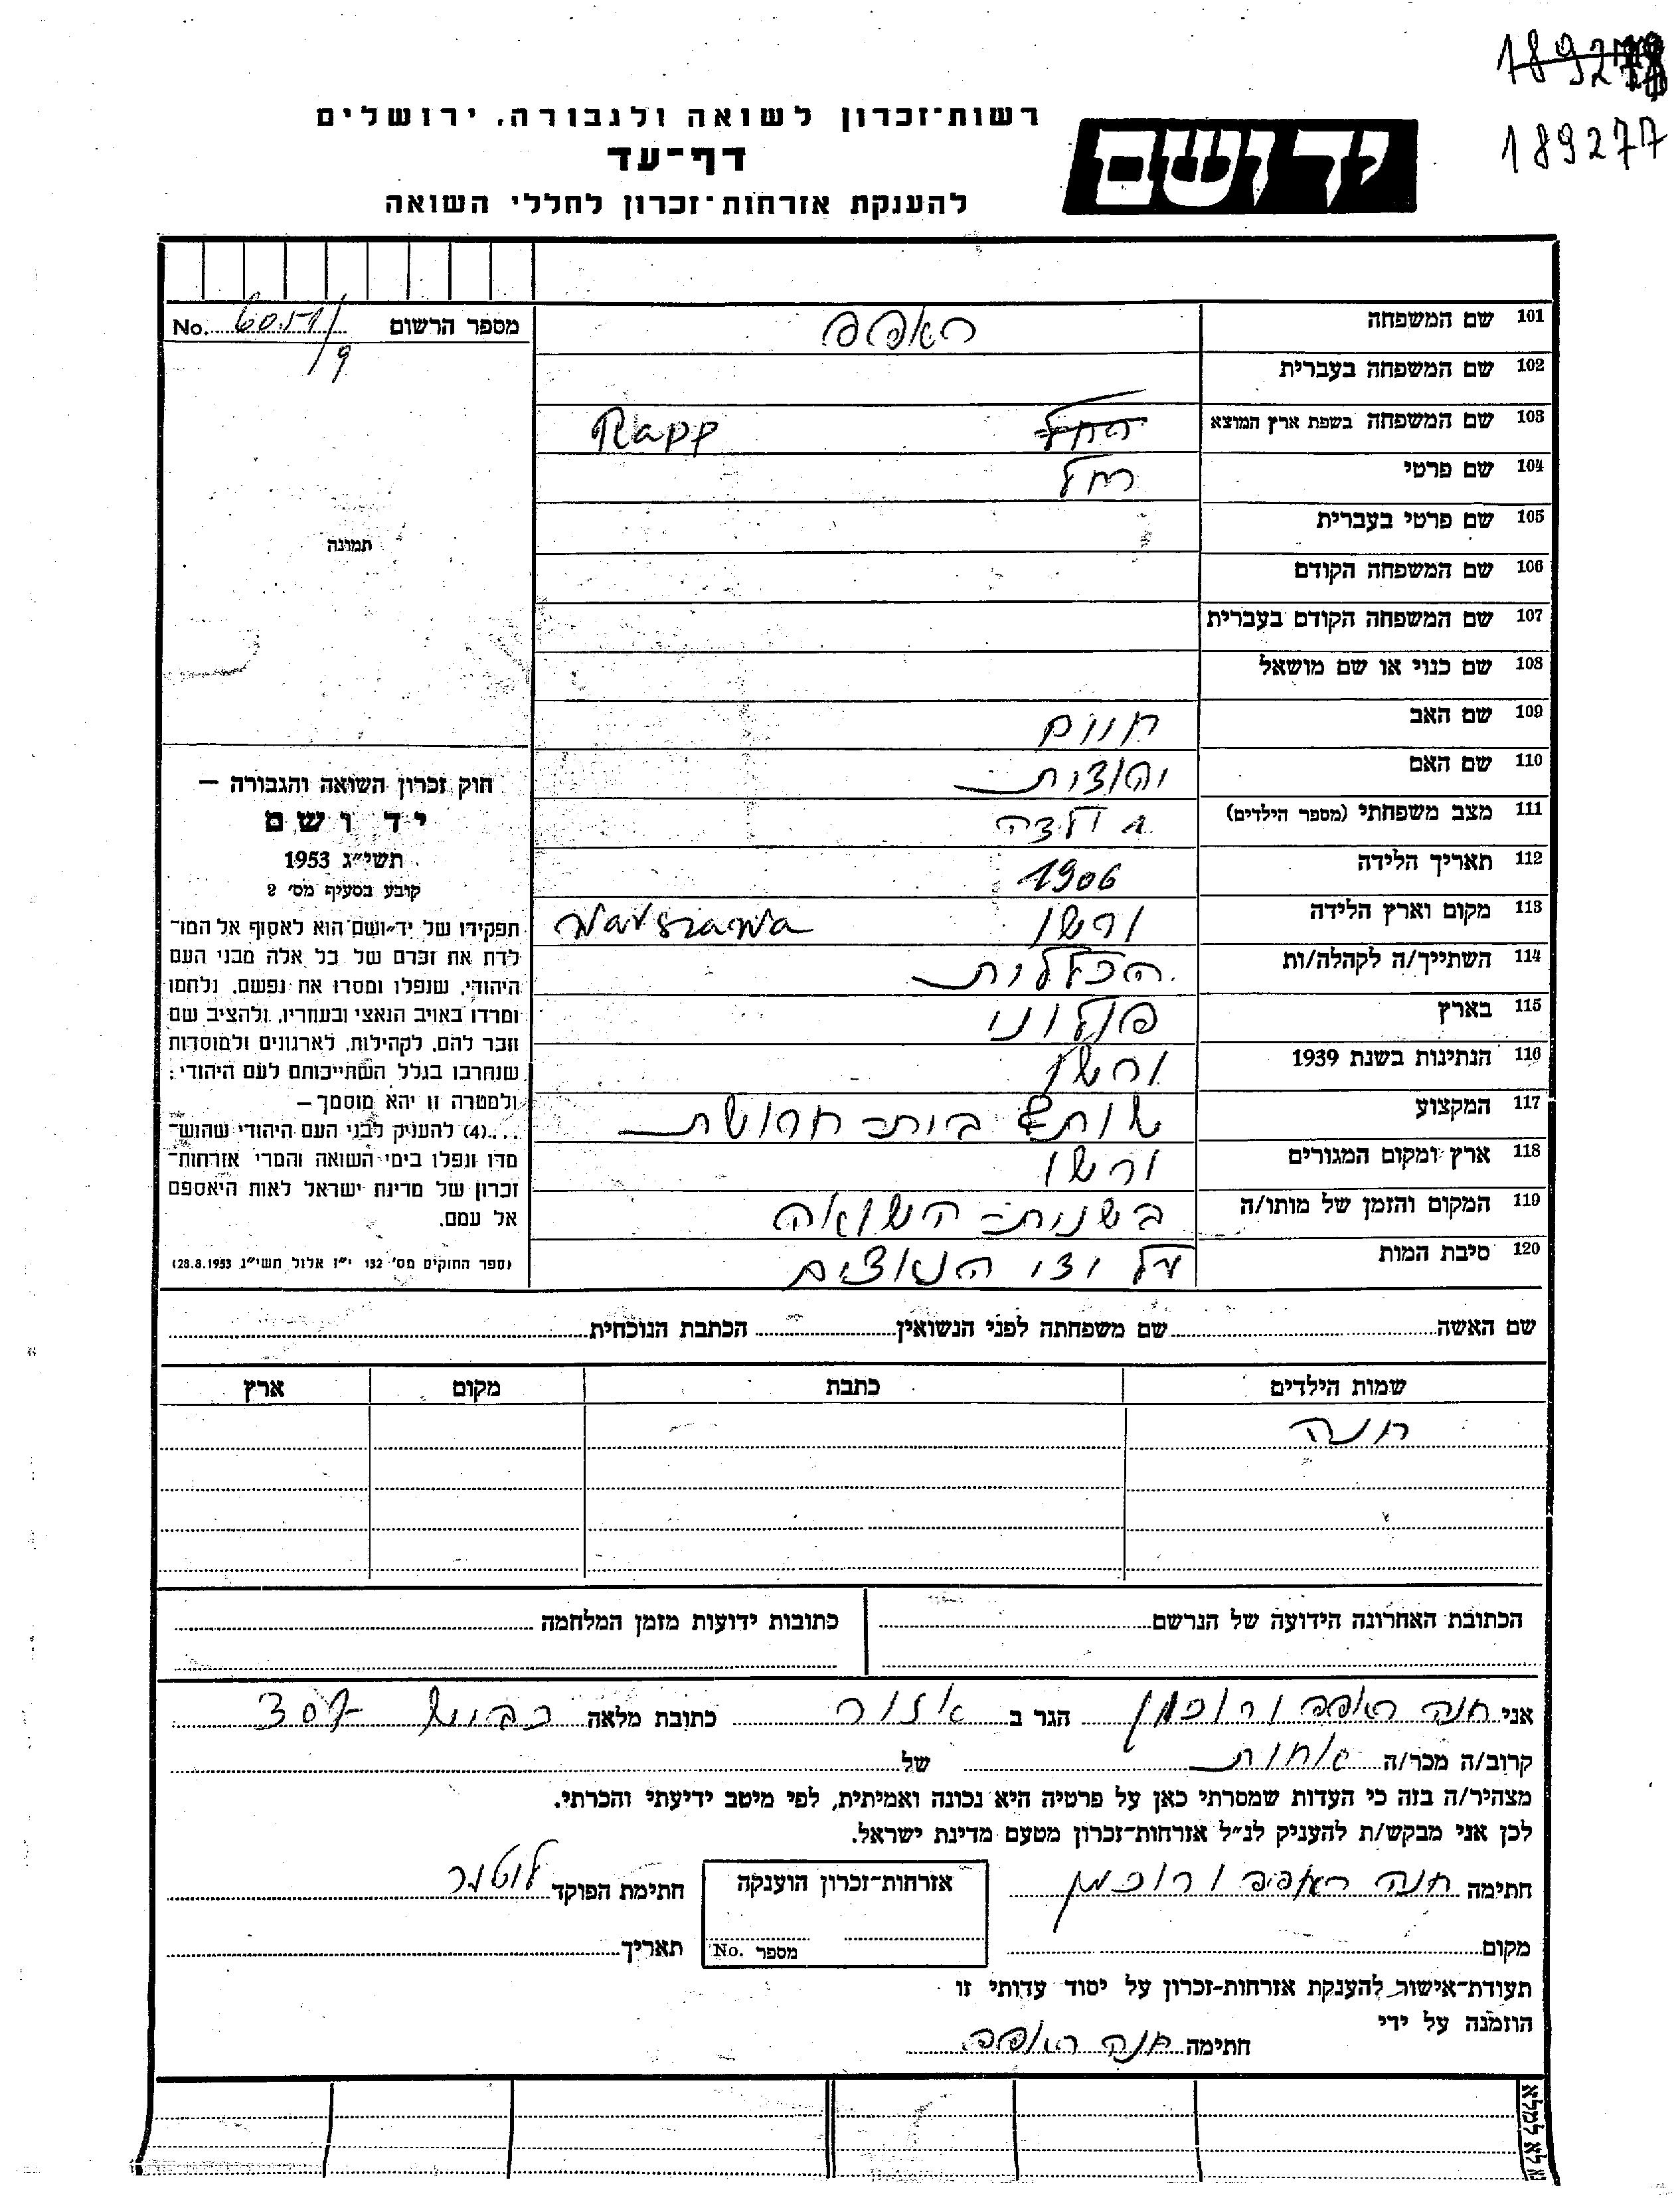 189278
189277
רשות־זכרון לשואה ולגבורה, ירושלים
יד ושם
דף־עד
להענקת אזרחות־זכרון לחללי השואה
מספר הרשום No. 6051/9
תמונה
101 שם המשפחה ראפפ
102 שם המשפחה בעברית
103 שם המשפחה בשפת ארץ המוצא רחל Rapp
104 שם פרטי רחל
105 שם פרטי בעברית
106 שם המשפחה הקודם
107 שם המשפחה הקודם בעברית
108 שם כנוי או שם מושאל
109 שם האב חיים
110 שם האם יהודית
111 מצב משפחתי (מספר הילדים) 1 ילדה
112 תאריך הלידה 1906
113 מקום וארץ הלידה ורשו Warszawa
114 השתייך/ה לקהלה/ות הכללית
115 בארץ פולוני
116 הנתינות בשנת 1939 ורשו
117 המקצוע בית חרושת
118 ארץ ומקום המגורים ורשו
119 המקום והזמן של מותו/ה בשנות השואה
120 סיבת המות על ידי הנאצים
חוק זכרון השואה והגבורה —
יד ושם
תשי״ג 1953
קובע בסעיף מס׳ 2
תפקידו של יד־ושם הוא לאסוף אל המו־
לדת את זכרם של כל אלה מבני העם
היהודי, שנפלו ומסרו את נפשם, נלחמו
ומרדו באויב הנאצי ובעוזריו, ולהציב שם
וזכר להם, לקהילות, לארגונים ולמוסדות
שנחרבו בגלל השתייכותם לעם היהודי;
ולמטרה זו יהא מוסמך —
...(4) להעניק לבני העם היהודי שהוש־
מדו ונפלו בימי השואה והמרי אזרחות־
זכרון של מדינת ישראל לאות היאספם
אל עמם.
(ספר החוקים מס׳ 132 י״ז אלול תשי״ג 28.8.1953)
שם האשה שם משפחתה לפני הנשואין הכתבת הנוכחית
שמות הילדים כתבת מקום ארץ
חנה
הכתובת האחרונה הידועה של הנרשם כתובות ידועות מזמן המלחמה
אני חנה ראפפ ורוכמן הגר ב אזור כתובת מלאה 307
קרוב/ה מכר/ה אחות של
מצהיר/ה בזה כי העדות שמסרתי כאן על פרטיה היא נכונה ואמיתית, לפי מיטב ידיעתי והכרתי.
לכן אני מבקש/ת להעניק לנ״ל אזרחות־זכרון מטעם מדינת ישראל.
חתימה חנה ראפפ ורוכמן אזרחות־זכרון הוענקה חתימת הפוקד לוטנר
מקום מספר No. תאריך
תעודת־אישור להענקת אזרחות־זכרון על יסוד עדותי זו
הוזמנה על ידי
חתימה חנה ראפפ
נא לא למלא